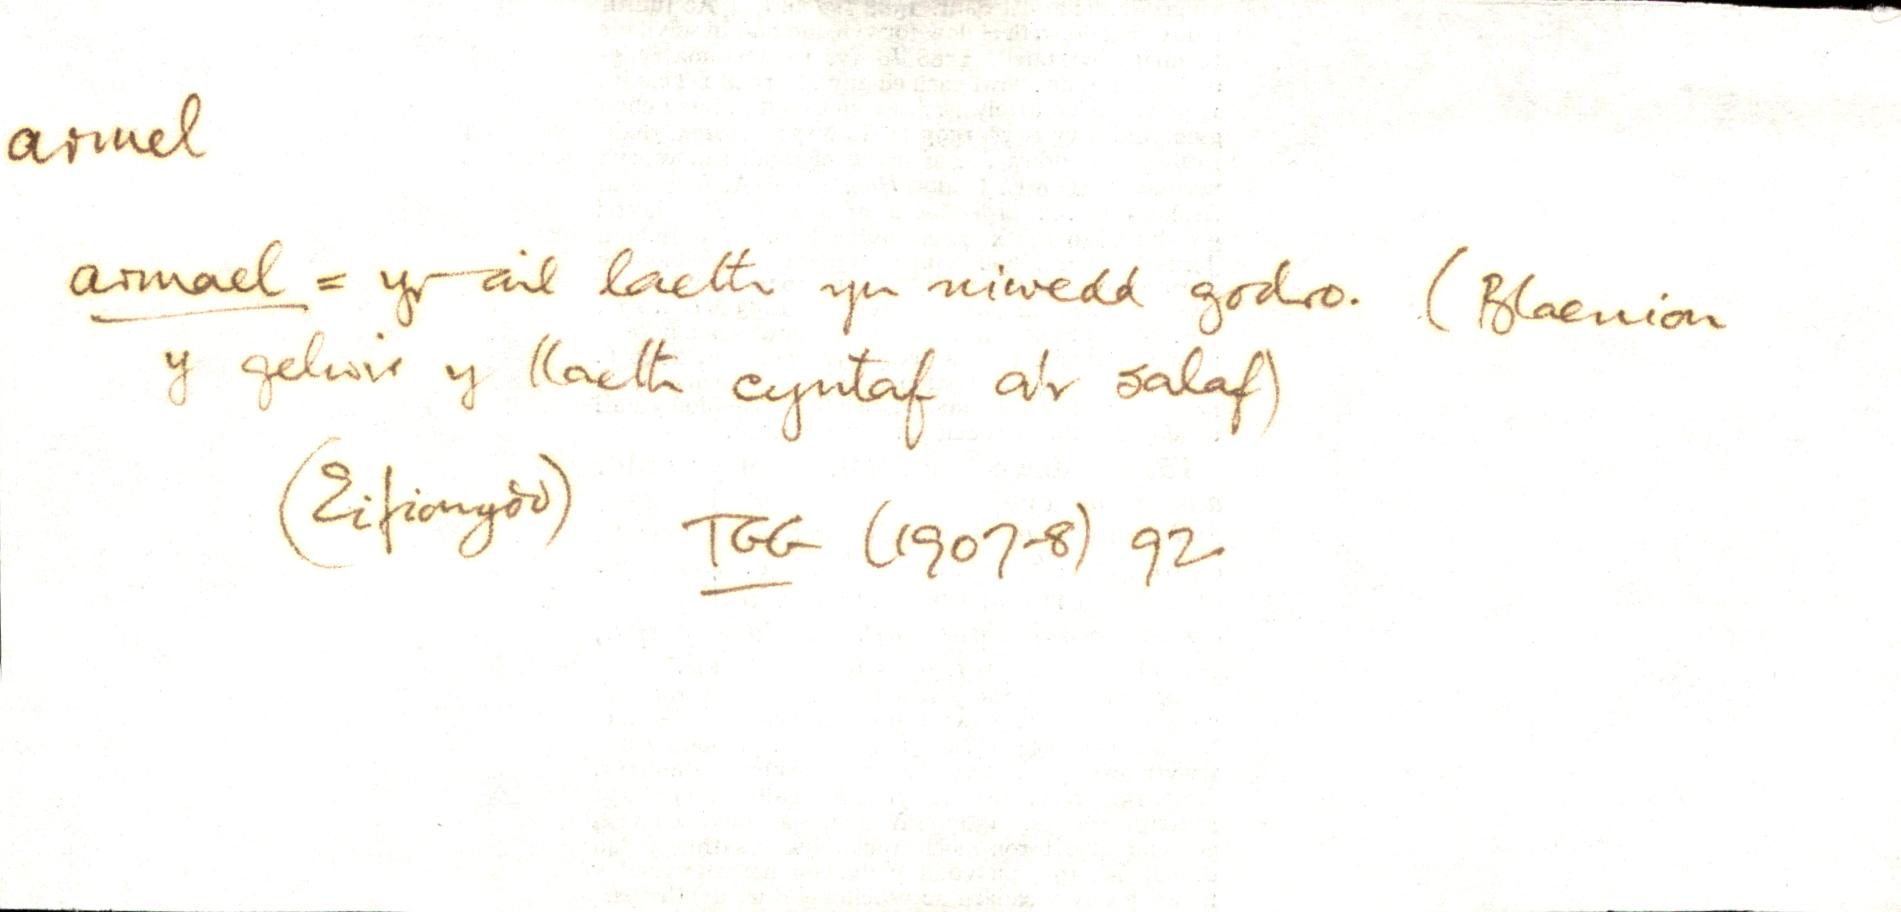 armel
armael = yr ail laeth yn niwedd godro. (Blaenion
y gelwir y llaeth cyntaf a'r salaf)
(Eifionydd) TGG (1907-8) 92